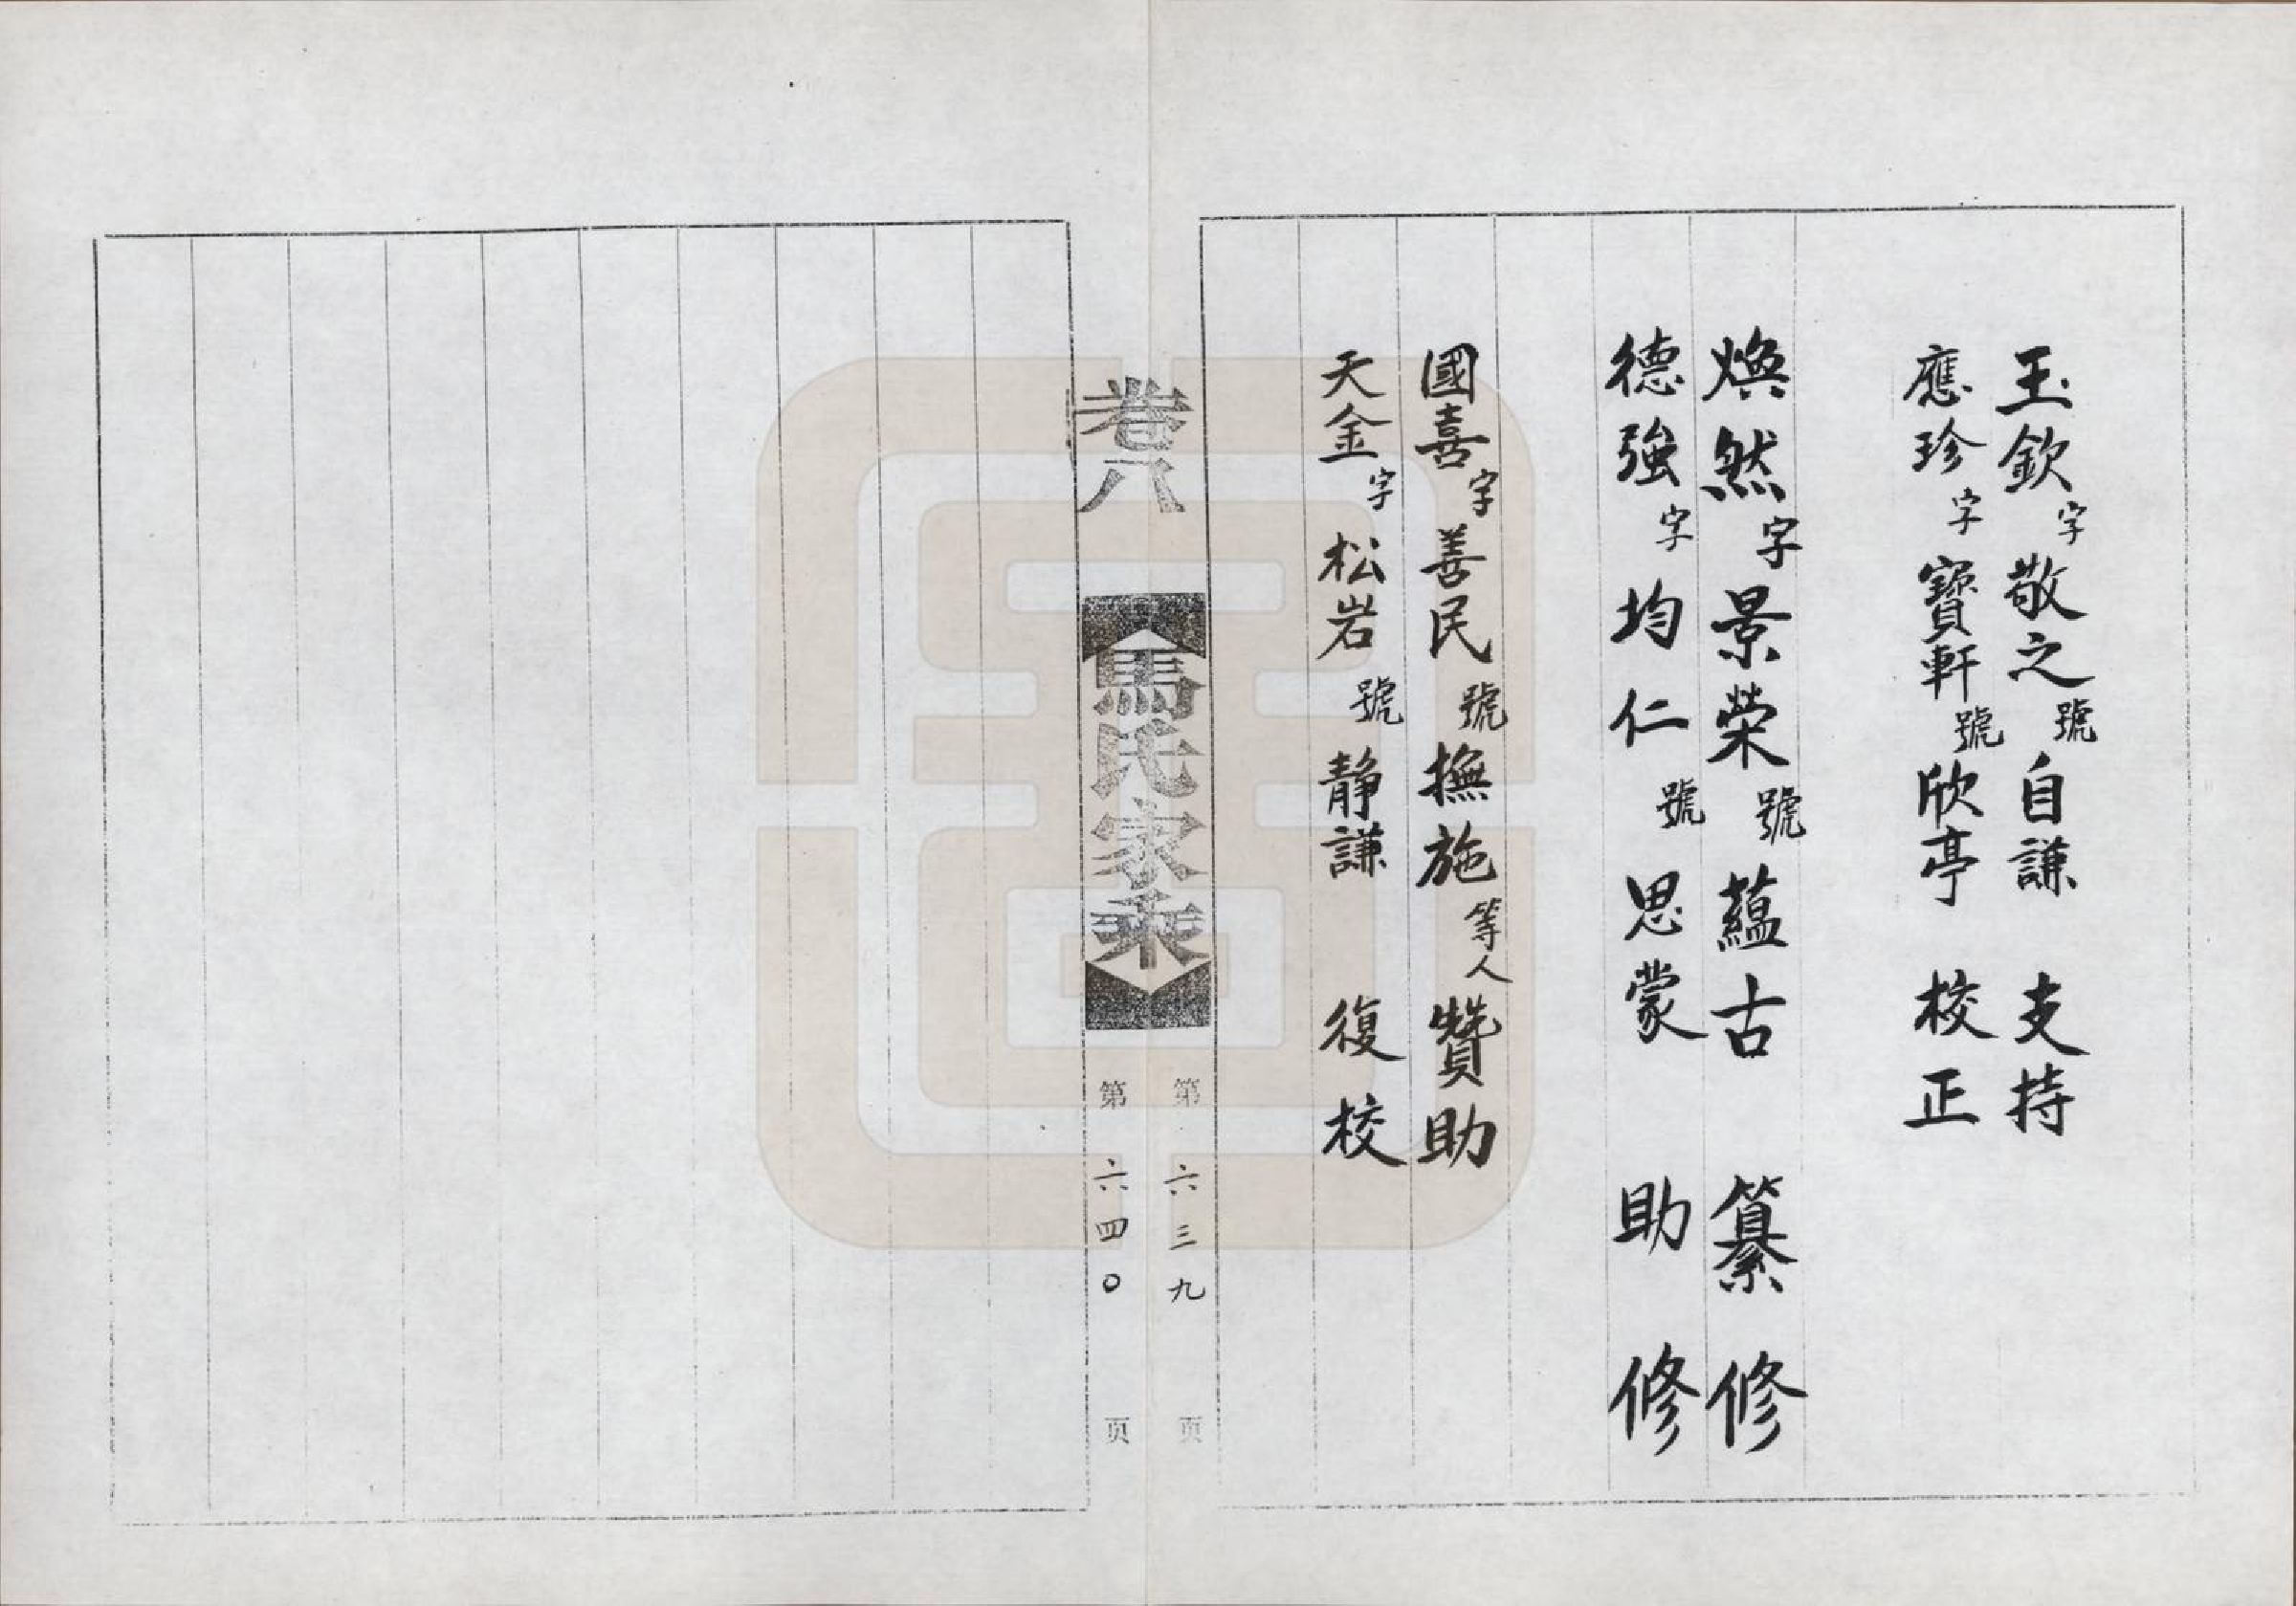 玉欽字敬之號自謙 支持
應珍字寶軒號欣亭 校正
煥然字景榮號蘊古 纂修
德強字均仁號思蒙 助修
國喜字善民號撫施等人 贊助
天金字松岩號靜謙 復校
卷八
馬氏家乘
第六三九页
第六四〇页